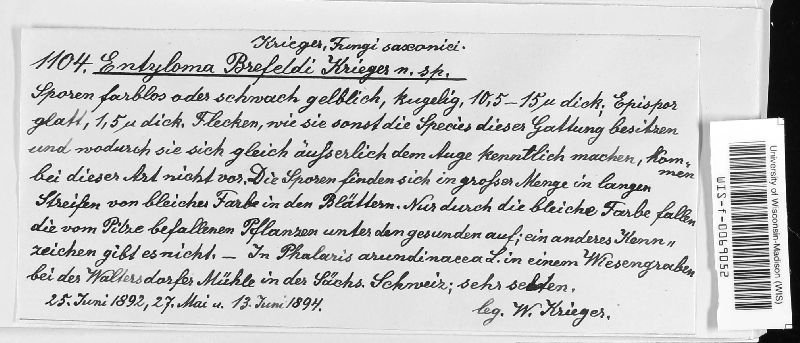 Krieger, Fungi saxonici.
1104. Entyloma Brefeldi Krieger n. sp.
Sporen farblos oder schwach gelblich, kugelig, 10,5–15 µ dick; Epispor
glatt, 1,5 µ dick. Flecken, wie sie sonst die Species dieser Gattung besitzen
und wodurch sie sich gleich äusserlich dem Auge kenntlich machen, kom-
men
bei dieser Art nicht vor. Die Sporen finden sich in grosser Menge in langen
Streifen von bleicher Farbe in den Blättern. Nur durch die bleiche Farbe fallen
die vom Pilze befallenen Pflanzen unter den gesunden auf; ein anderes Kenn„
zeichen gibt es nicht. — In Phalaris arundinacea L. in einem Wiesengraben
bei der Waltersdorfer Mühle in der Sächs. Schweiz; sehr selten.
25. Juni 1892, 27. Mai u. 13. Juni 1894.
leg. W. Krieger.
University of Wisconsin-Madison (WIS)
WIS-f-0069052